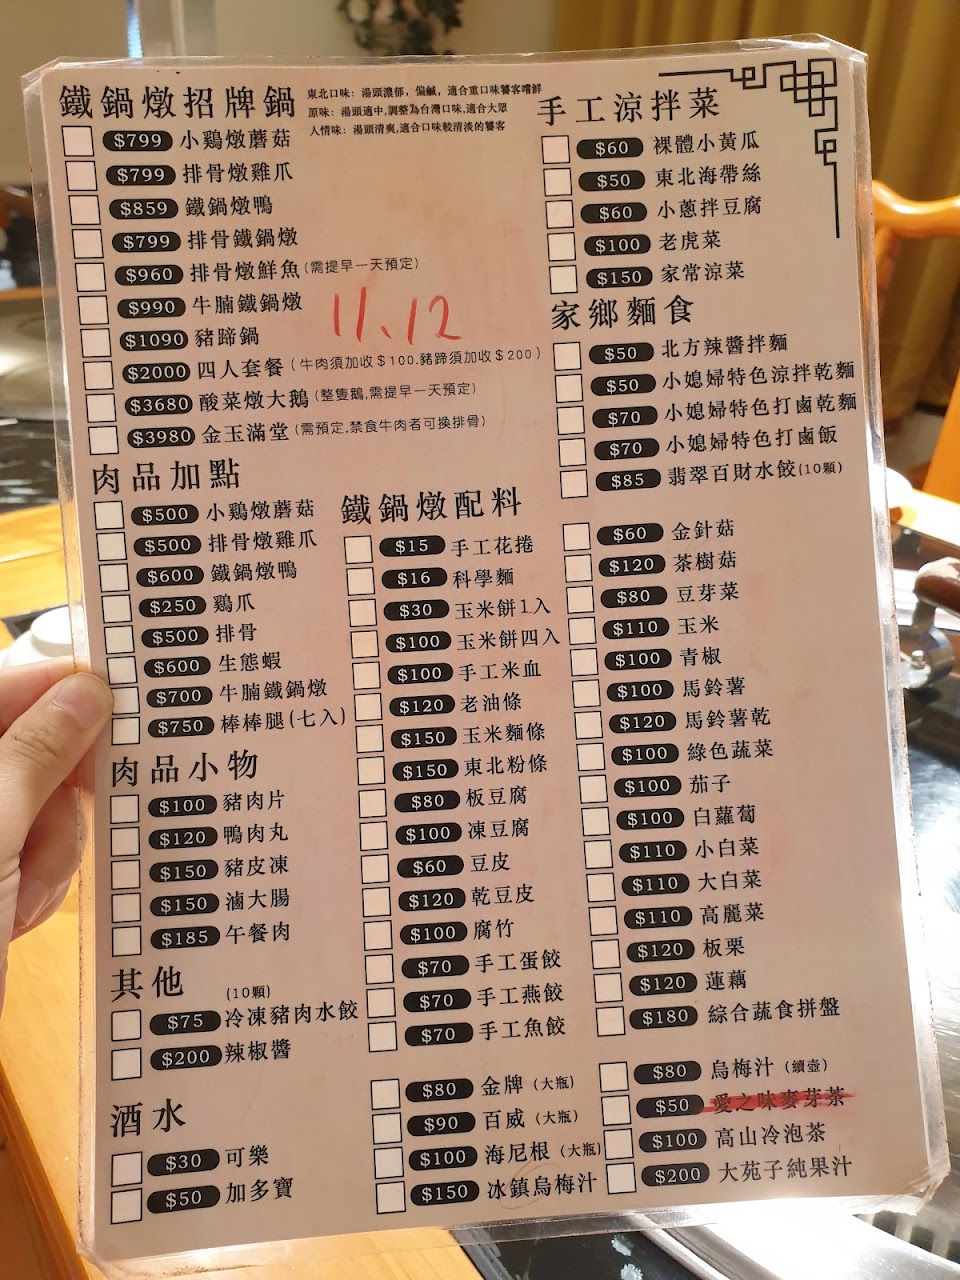 鐵鍋燉招牌鍋
東北口味：湯頭濃郁，偏鹹，適合重口味饕客嚐鮮
原味：湯頭適中,調整為台灣口味,適合大眾
人情味：湯頭清爽,適合口味較清淡的饕客
$799 小鷄燉蘑菇
$799 排骨燉雞爪
$859 鐵鍋燉鴨
$799 排骨鐵鍋燉
$960 排骨燉鮮魚(需提早一天預定)
$990 牛腩鐵鍋燉
$1090 豬蹄鍋
$2000 四人套餐 (牛肉須加收$100.豬蹄須加收$200)
$3680 酸菜燉大鵝 (整隻鵝,需提早一天預定)
$3980 金玉滿堂 (需預定,禁食牛肉者可換排骨)
11、12
肉品加點
$500 小鷄燉蘑菇
$500 排骨燉雞爪
$600 鐵鍋燉鴨
$250 鷄爪
$500 排骨
$600 生態蝦
$700 牛腩鐵鍋燉
$750 棒棒腿(七入)
肉品小物
$100 豬肉片
$120 鴨肉丸
$150 豬皮凍
$150 滷大腸
$185 午餐肉
其他
(10顆)
$75 冷凍豬肉水餃
$200 辣椒醬
酒水
$30 可樂
$50 加多寶
鐵鍋燉配料
$15 手工花捲
$16 科學麵
$30 玉米餅1入
$100 玉米餅四入
$100 手工米血
$120 老油條
$150 玉米麵條
$150 東北粉條
$80 板豆腐
$100 凍豆腐
$60 豆皮
$120 乾豆皮
$100 腐竹
$70 手工蛋餃
$70 手工燕餃
$70 手工魚餃
$80 金牌 (大瓶)
$90 百威 (大瓶)
$100 海尼根 (大瓶)
$150 冰鎮烏梅汁
手工涼拌菜
$60 裸體小黃瓜
$50 東北海帶絲
$60 小蔥拌豆腐
$100 老虎菜
$150 家常涼菜
家鄉麵食
$50 北方辣醬拌麵
$50 小媳婦特色涼拌乾麵
$70 小媳婦特色打鹵乾麵
$70 小媳婦特色打鹵飯
$85 翡翠百財水餃(10顆)
$60 金針菇
$120 茶樹菇
$80 豆芽菜
$110 玉米
$100 青椒
$100 馬鈴薯
$120 馬鈴薯乾
$100 綠色蔬菜
$100 茄子
$100 白蘿蔔
$110 小白菜
$110 大白菜
$110 高麗菜
$120 板栗
$120 蓮藕
$180 綜合蔬食拼盤
$80 烏梅汁 (續壺)
$50 愛之味麥芽茶
$100 高山冷泡茶
$200 大苑子純果汁